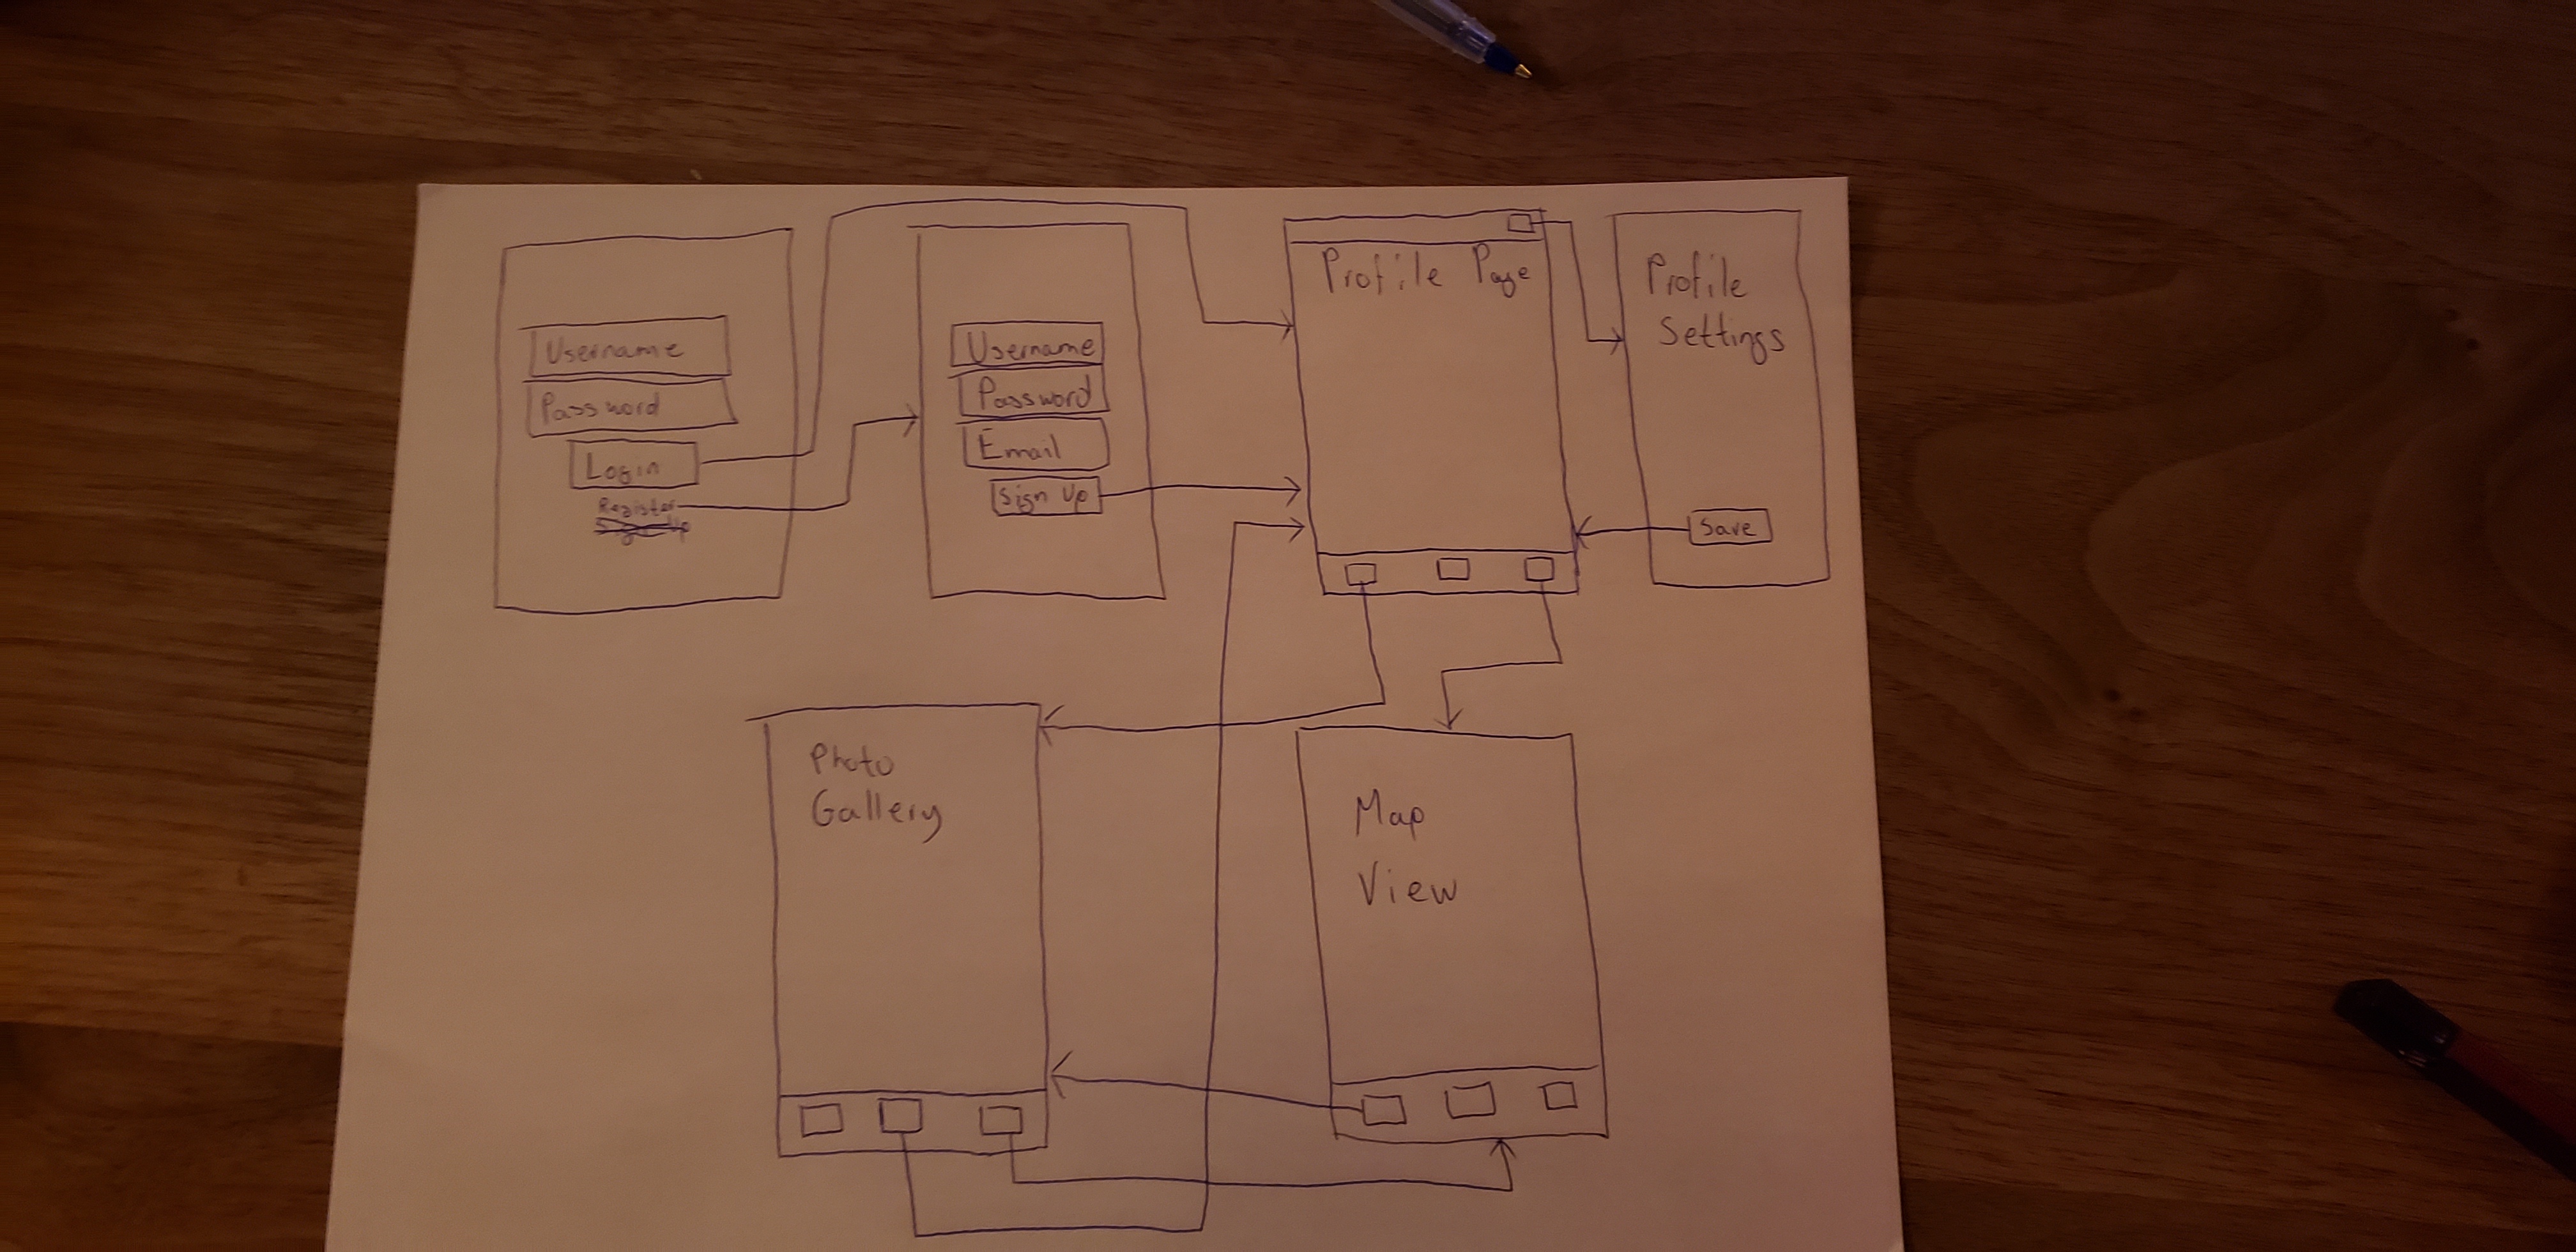 Username
Password
Login
Register
Sign Up
Username
Password
Email
Sign Up
Profile Page
Profile
Settings
Save
Photo
Gallery
Map
View